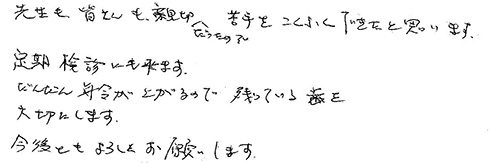 先生も、皆さんも、親切だったので苦手をこくふくできたと思います。
定期検診にも来ます。
だんだん年令が上がるので残っている歯を
大切にします。
今後ともよろしくお願いします。